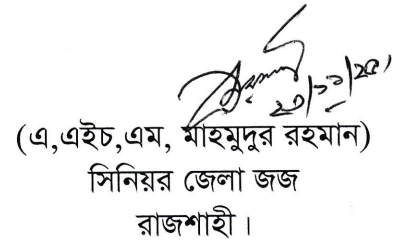 (এ,এইচ,এম, মাহমুদুর রহমান)
সিনিয়র জেলা জজ
রাজশাহী।